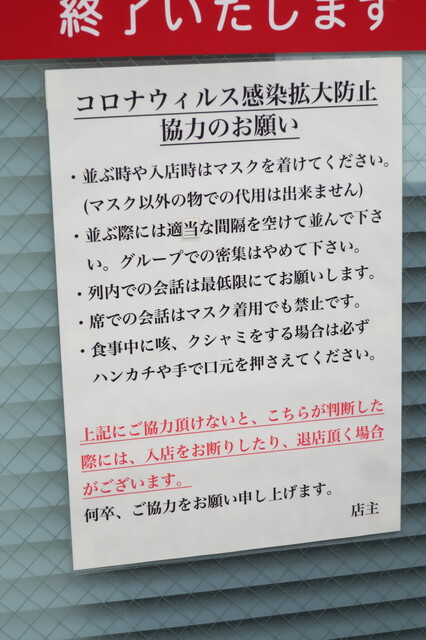 終了いたします
コロナウィルス感染拡大防止
協力のお願い
・並ぶ時や入店時はマスクを着けてください。
(マスク以外の物での代用は出来ません)
・並ぶ際には適当な間隔を空けて並んで下さ
い。グループでの密集はやめて下さい。
・列内での会話は最低限にてお願いします。
・席での会話はマスク着用でも禁止です。
・食事中に咳、クシャミをする場合は必ず
ハンカチや手で口元を押さえてください。
上記にご協力頂けないと、こちらが判断した
際には、入店をお断りしたり、退店頂く場合
がございます。
何卒、ご協力をお願い申し上げます。
店主